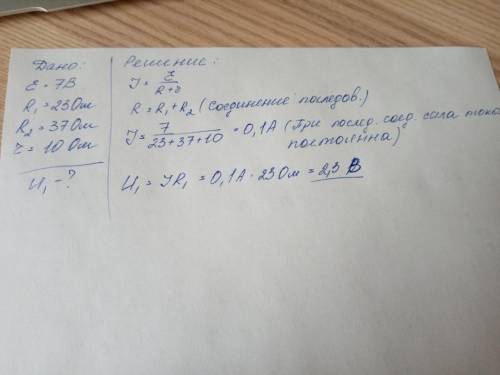 Дано:
ε = 7В
R₁ = 23 Ом
R₂ = 37 Ом
r = 10 Ом
U₁ - ?
Решение:
I = ε / (R + r)
R = R₁ + R₂ (Соединение последов.)
I = 7 / (23+37+10) = 0,1А (При послед. соед. сила тока
постоянна)
U₁ = IR₁ = 0,1А · 23 Ом = 2,3 В